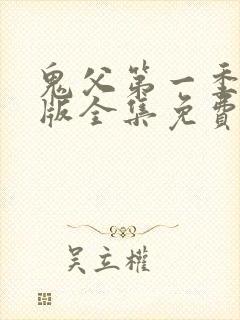 鬼父第一季
版全集免費
吴立權